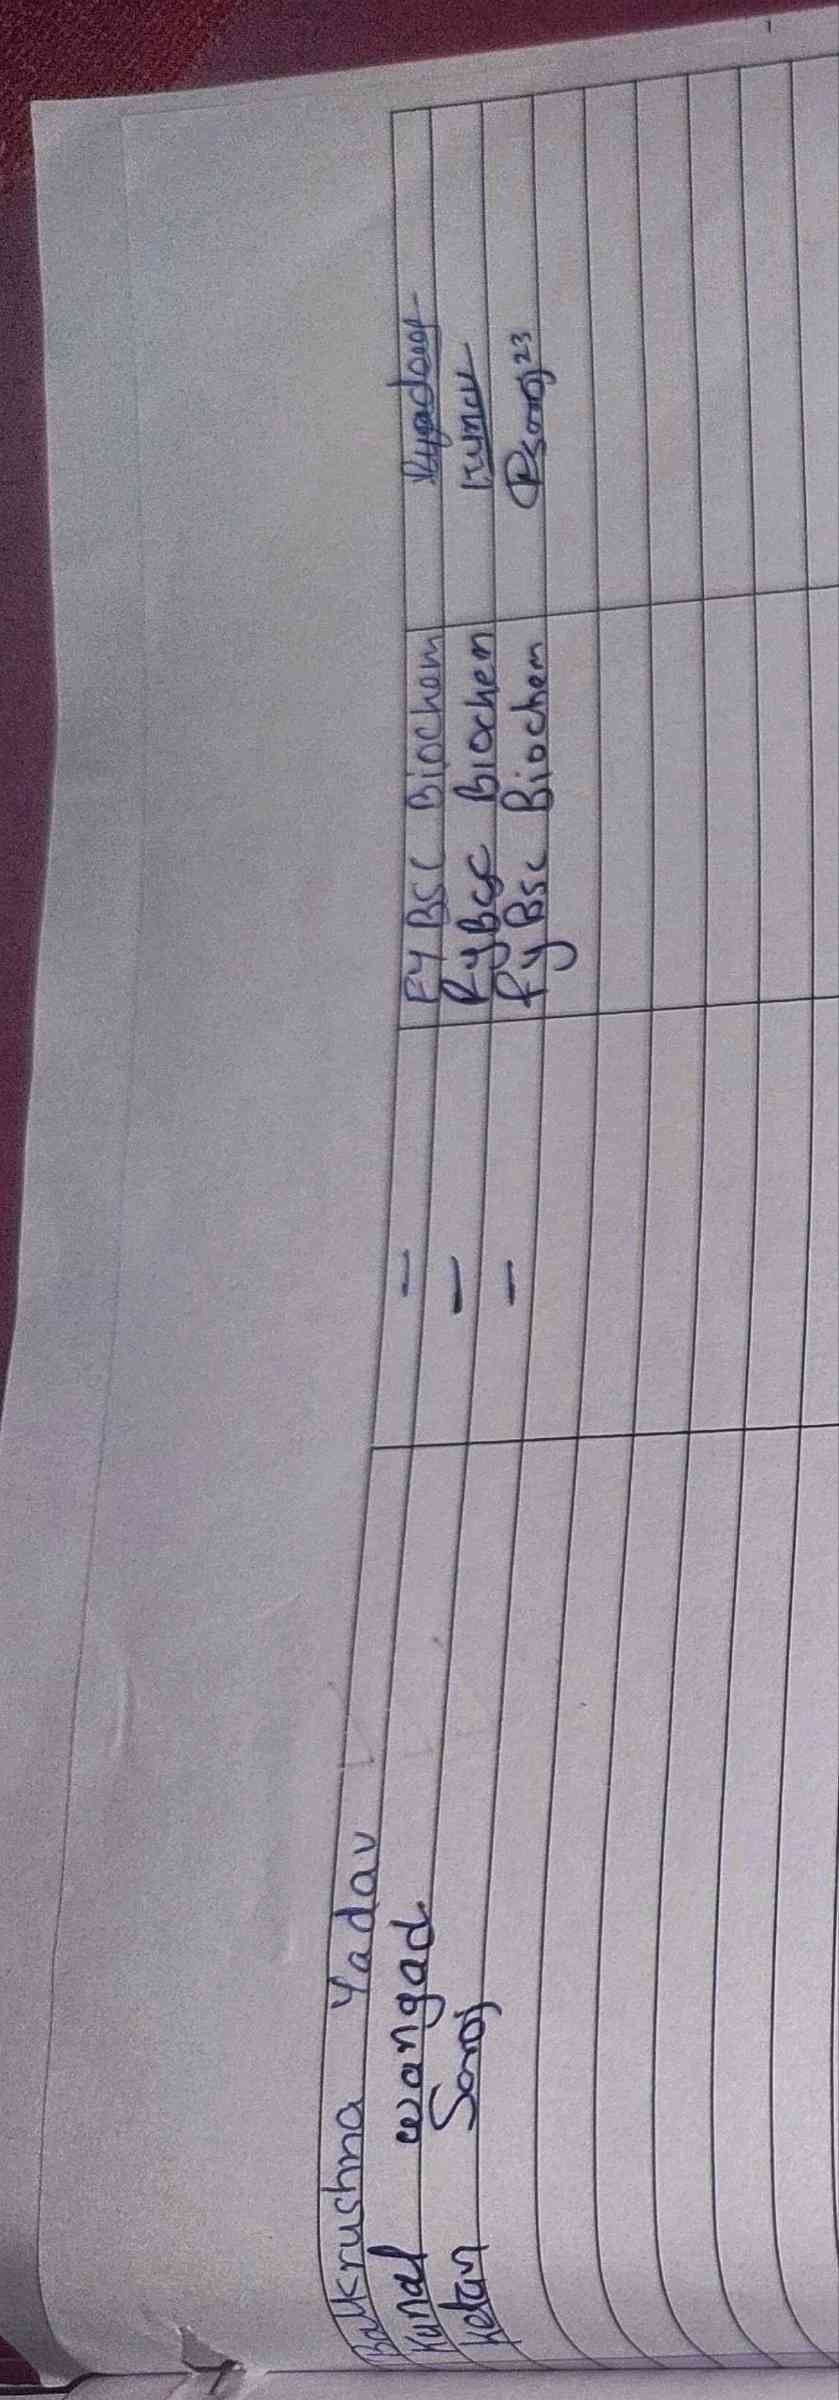 Balkrushna Yadav — FY BSC Biochem
Kunal wangad — FyBsc Biochem
ketan Saroj — fy Bsc Biochem Psaroj23